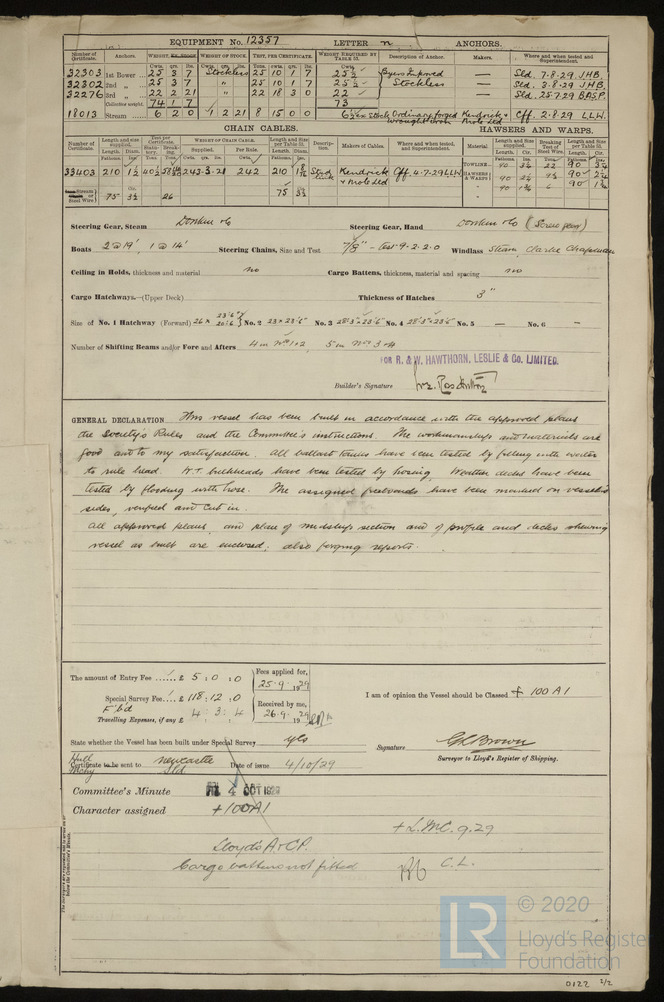 EQUIPMENT No. 12357 LETTER n ANCHORS.
Number of Certificate. Anchors. WEIGHT, Ex. Stock WEIGHT OF STOCK. TEST, PER CERTIFICATE. WEIGHT REQUIRED BY TABLE 53. Description of Anchor. Makers. Where and when tested and Superintendent.
Cwts. qrs. lbs. Cwts. qrs. lbs. Tons. cwts. qrs. lbs. Cwts.
32303 1st Bower 25 3 7 Stockless 25 10 1 7 25½ Byers Improved — Sld. 7.8.29 J.H.B.
32302 2nd „ 25 3 7 „ 25 10 1 7 25½ Stockless — Sld. 3.8.29 J.H.B.
32276 3rd „ 22 2 21 „ 22 18 3 0 22 — Sld. 25.7.29 B.A.S.P.
Collective weight. 74 1 7 73
18013 Stream 6 2 0 1 2 21 8 15 0 0 6½ ex Stock Ordinary forged wrought iron Kendrick & Mole Ltd Cff. 2.8.29 L.L.W.
CHAIN CABLES. HAWSERS AND WARPS.
Number of Certificate. Length and size supplied. Test per Certificate. WEIGHT OF CHAIN CABLE. Length and size per Table 53. Description. Makers of Cables. Where and when tested, and Superintendent. Material Length and Size supplied. Breaking Test of Steel Wire. Length and Size per Table 53.
Length. Diam. Supplied. Per Rule. Length. Diam. Length. Cir. Length. Cir.
Fathoms. Ins. Tons. Tons. Cwts. qrs. lbs. Cwts. Fathoms. Ins. Fathoms. Ins. Tons. Fathoms. Ins.
TOWLINE
33403 210 1½ 40½ 243.3.21 242 210 Stud link Kendrick & Mole Ltd Cff. 4.7.29 LLW HAWSERS & WARPS
Stream or Steel Wire 75 3½ 26 75 3½
Steering Gear, Steam Donkin & Co Steering Gear, Hand Donkin & Co (Screw gear)
Boats 2 @ 19', 1 @ 14' Steering Chains, Size and Test 7/8" – test 9.2.2.0 Windlass Steam, Clarke Chapman
Ceiling in Holds, thickness and material no Cargo Battens, thickness, material and spacing no
Cargo Hatchways.—(Upper Deck) Thickness of Hatches 3"
Size of No. 1 Hatchway (Forward) 26 × 23'6" 20'6" No. 2 23 × 23'6" No. 3 28'3" × 23'6" No. 4 28'3" × 23'6" No. 5 — No. 6 –
Number of Shifting Beams and/or Fore and Afters 4 in Nos 1+2, 5 in Nos 3+4
FOR R. & W. HAWTHORN, LESLIE & Co. LIMITED.
Builder's Signature
GENERAL DECLARATION This vessel has been built in accordance with the approved plans
the Society's Rules and the Committee's instructions. The workmanship and materials are
good and to my satisfaction. All ballast tanks have been tested by filling with water
to rule head. W.T. bulkheads have been tested by hosing. Weather decks have been
tested by flooding with hose. The assigned freeboards have been marked on vessel's
sides, verified and cut in.
All approved plans, and plans of midship section and of profile and decks showing
vessel as built are enclosed; also forging reports.
The amount of Entry Fee £ 5 : 0 : 0 Fees applied for, 25.9.1929
Special Survey Fee £ 118 : 12 : 0 Received by me, 26.9.1929
F'bd Travelling Expenses, if any £ 4 : 3 : 4
I am of opinion the Vessel should be Classed + 100 A1
State whether the Vessel has been built under Special Survey yes
Signature G.L. Brown
Surveyor to Lloyd's Register of Shipping.
Hull Mchy Certificate to be sent to Newcastle Sld. Date of issue 4/10/29
Committee's Minute FRI. 4 OCT 1929
Character assigned +100A1
+ L.M.C. 9.29
Lloyd's A & C.P.
Cargo battens not fitted C.L.
LR © 2020
Lloyd's Register
Foundation
0122 2/2